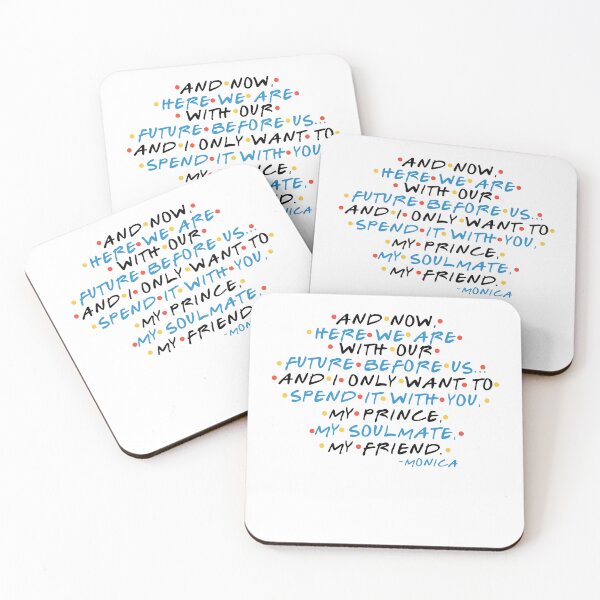 AND NOW,
HERE WE ARE
WITH OUR
FUTURE BEFORE US...
AND I ONLY WANT TO
SPEND IT WITH YOU,
MY PRINCE,
SOULMATE,
FRIEND.
-MONICA
AND NOW,
HERE WE ARE
WITH OUR
FUTURE BEFORE US...
AND I ONLY WANT TO
SPEND IT WITH YOU,
MY PRINCE,
MY SOULMATE,
MY FRIEND.
-MONICA
AND NOW,
HERE WE ARE
WITH OUR
FUTURE BEFORE US...
AND I ONLY WANT TO
SPEND IT WITH YOU,
MY PRINCE,
MY SOULMATE,
MY FRIEND.
AND NOW,
HERE WE ARE
WITH OUR
FUTURE BEFORE US...
AND I ONLY WANT TO
SPEND IT WITH YOU,
MY PRINCE,
MY SOULMATE,
MY FRIEND.
-MONICA